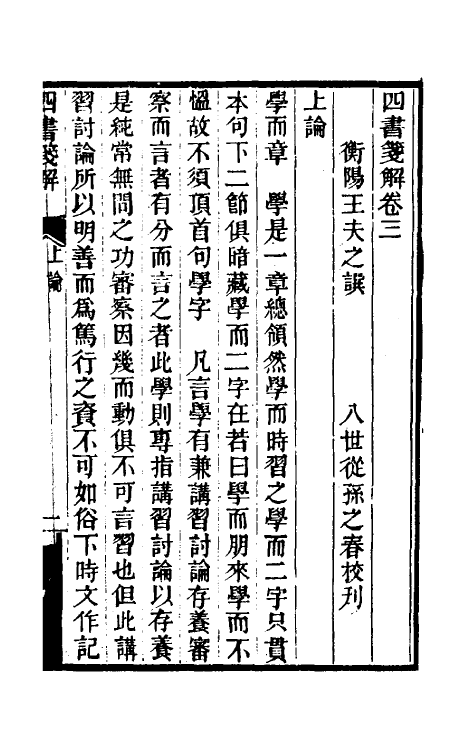 四書箋解卷三
衡陽王夫之譔　八世從孫之春校刋
上論
學而章　學是一章總領然學而時習之學而二字只貫
本句下二節俱暗藏學而二字在若曰學而朋來學而不
慍故不須頂首句學字　凡言學有兼講習討論存養審
察而言者有分而言之者此學則專指講習討論以存養
是純常無間之功審察因幾而動俱不可言習也但此講
習討論所以明善而爲篤行之資不可如俗下時文作記
四書箋解
上論
一